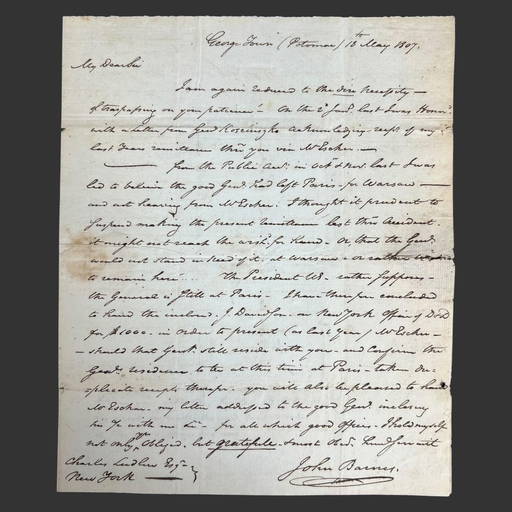 George Town (Potomac) 15th May 1807.
My Dear Sir
I am again reduced to the dire necessity —
of trespassing on your patience! On the 2d Jany last I was Honor'd
with a letter from Genl Kosciusko acknowledging rect of my
last years remittance thro you via Mr Escher. —
— from the Public in Octr & Novr last I was
led to believe the good Genl had left Paris for Warsaw —
and not hearing from Mr Escher. I thought it prudent to
suspend making the present remittance lest thro accident
it might not reach the wish'd for Hand — or that the Genl
would not stand in need of it at Warsaw — or rather
to remain here ... the President US. rather supposes —
the General is still at Paris — I have therefore concluded
to hand the inclosed J. Davidson on New York Office of D&D
for $1000 — in order to present (as last year) Mr Escher —
— should that Gent still reside with you — and confirm the
Genls residence to be at this time at Paris — taken du-
-plicate receipts therefor. you will also be pleased to hand
Mr Escher my letter addressed to the good Genl inclosing
with me for all which good Offices — I hold myself
not only Obliged, but grateful & most Obed. Humb Servant
Charles Ludlow Esqr
New York
John Barnes.